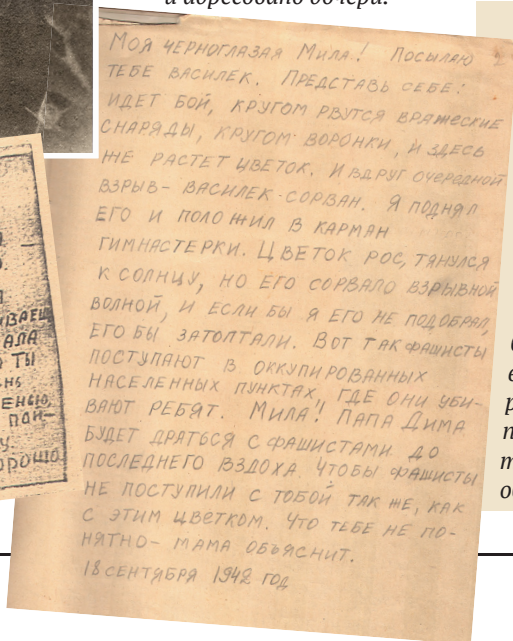 и адресовано дочери.
МОЯ ЧЕРНОГЛАЗАЯ МИЛА! ПОСЫЛАЮ
ТЕБЕ ВАСИЛЕК. ПРЕДСТАВЬ СЕБЕ:
ИДЕТ БОЙ, КРУГОМ РВУТСЯ ВРАЖЕСКИЕ
СНАРЯДЫ, КРУГОМ ВОРОНКИ, И ЗДЕСЬ
ЖЕ РАСТЕТ ЦВЕТОК. И ВДРУГ ОЧЕРЕДНОЙ
ВЗРЫВ - ВАСИЛЕК СОРВАН. Я ПОДНЯЛ
ЕГО И ПОЛОЖИЛ В КАРМАН
ГИМНАСТЕРКИ. ЦВЕТОК РОС, ТЯНУЛСЯ
К СОЛНЦУ, НО ЕГО СОРВАЛО ВЗРЫВНОЙ
ВОЛНОЙ, И ЕСЛИ БЫ Я ЕГО НЕ ПОДОБРАЛ,
ЕГО БЫ ЗАТОПТАЛИ. ВОТ ТАК ФАШИСТЫ
ПОСТУПАЮТ В ОККУПИРОВАННЫХ
НАСЕЛЕННЫХ ПУНКТАХ, ГДЕ ОНИ УБИ-
ВАЮТ РЕБЯТ. МИЛА! ПАПА ДИМА
БУДЕТ ДРАТЬСЯ С ФАШИСТАМИ ДО
ПОСЛЕДНЕГО ВЗДОХА ЧТОБЫ ФАШИСТЫ
НЕ ПОСТУПИЛИ С ТОБОЙ ТАК ЖЕ, КАК
С ЭТИМ ЦВЕТКОМ. ЧТО ТЕБЕ НЕ ПО-
НЯТНО - МАМА ОБЪЯСНИТ.
18 СЕНТЯБРЯ 1942 ГОД